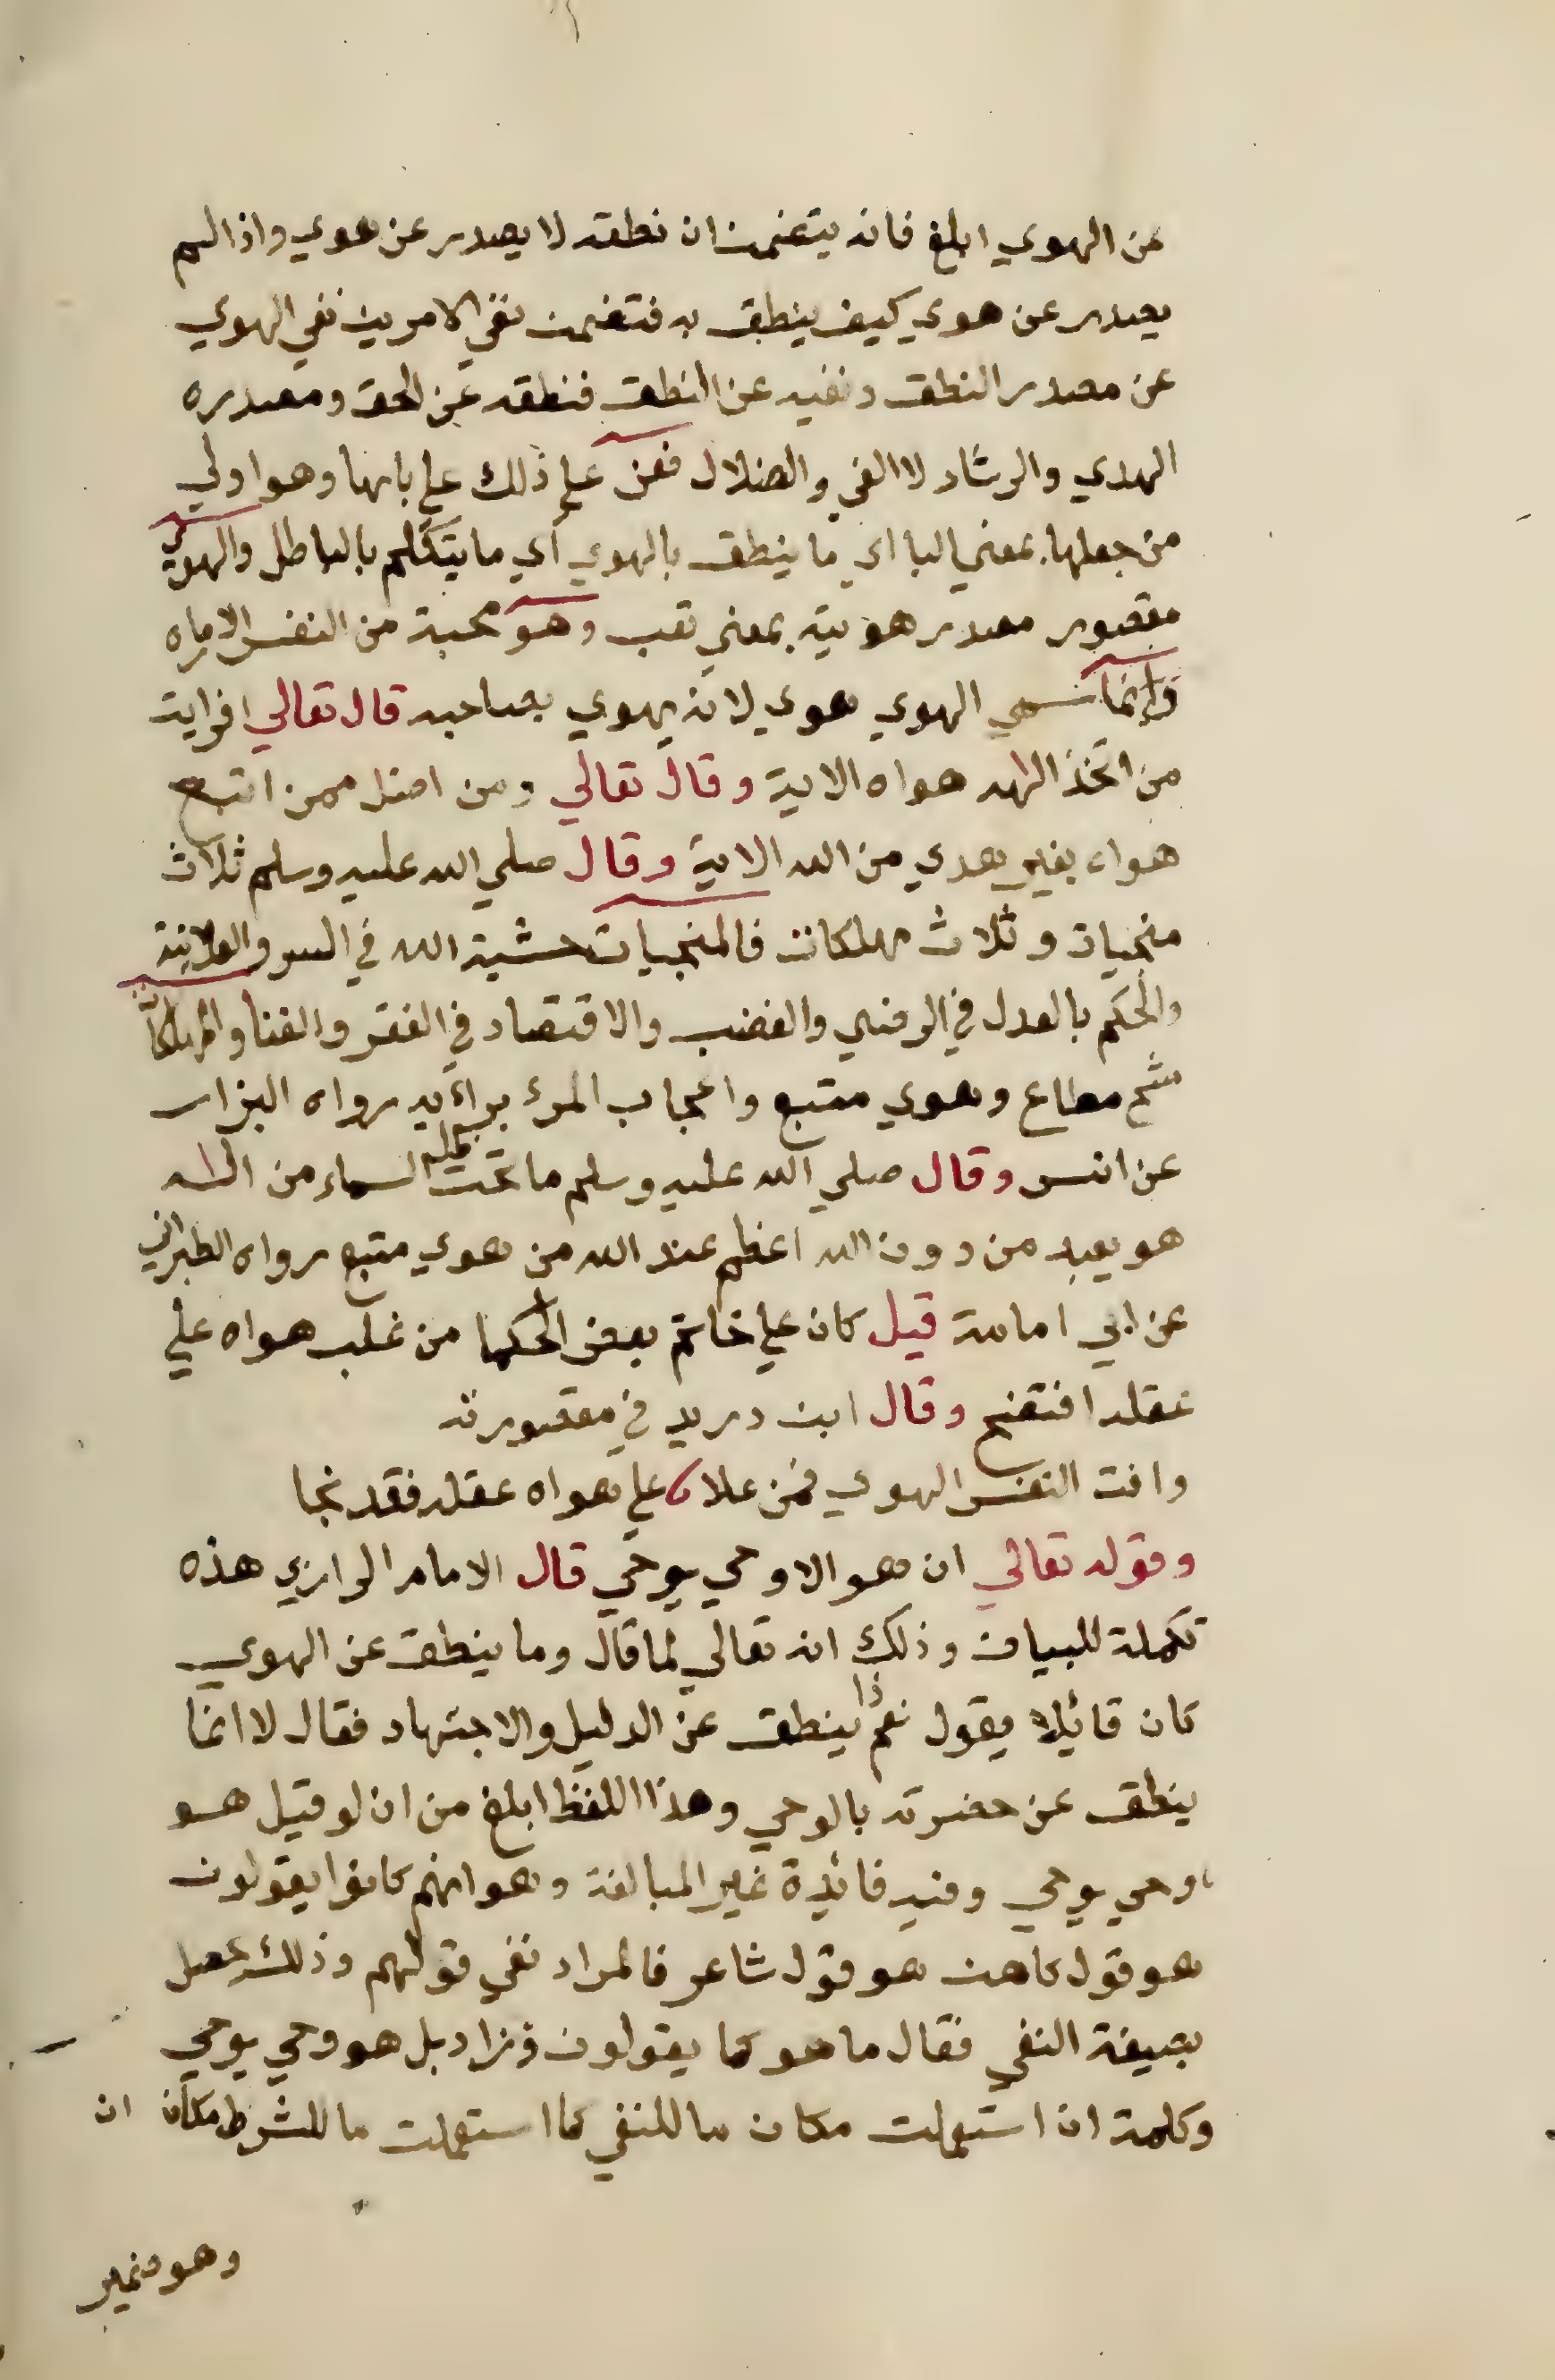 عن الهوي ابلغ فانه يتضمن ان نطقه لا يصدر عن هوي واذا لم
يصدر عن هوي كيف ينطق به فتضمن نفي الامرين نفي الهوي
عن مصدر النطق ونفيه عن النطق فنطقه عن الحق ومصدره
الهدي والرشاد لا الغي والضلال فعن علي ذلك علي بابها وهو اولي
من جعلها بمعني البا اي ما ينطق بالهوي أي ما يتكلم بالباطل والهوي
مقصور مصدر هويته بمعني تعب وهو محبة من النفس الاماره
وانما سمي الهوي هوي لانه يهوي بصاحبه قال تعالي افرايت
من اتخذ الهه هواه الاية وقال تعالي ومن اضل ممن اتبع
هواه بغير هدي من الله الاية وقال صلي الله عليه وسلم ثلاث
منجيات وثلاث مهلكات فالمنجيات خشية الله في السر والعلانية
والحكم بالعدل في الرضي والغضب والاقتصاد في الفقر والغنا والمهلكات
شح مطاع وهوي متبع واعجاب المرء براءيه رواه البزار
عن انس وقال صلي الله عليه وسلم ما تحت ظله السماء من اله
هو يعبد من دون الله اعظم عند الله من هوي متبع رواه الطبراني
عن ابي امامة قيل كان علي خاتم بعض الحكما من غلب هواه علي
عقله افتضح وقال ابن دريد في مقصورته
وافت النفس الهوي فمن علا علي هواه عقله فقد نجا
وقوله تعالي ان هو الا وحي يوحي قال الامام الرازي هذه
تكملة للبيان وذلك انه تعالي لما قال وما ينطق عن الهوي
كان قائيلا يقول فعم ذا ينطق عن الدليل والاجتهاد فقال لا انما
ينطق عن حضرته بالوحي وهذا اللفظ ابلغ من ان لو قيل هو
وحي يوحي وفيه فائدة غير المبالغة وهو انهم كانوا يقولون
هو قول كاهن هو قول شاعر فالمراد نفي قولهم وذلك يحصل
بصيغة النفي فقال ما هو كما يقولون فزاد بل هو وحي يوحي
وكلمة ان استعملت مكان ما للنفي كما استعملت ما للشرط مكان ان
وهو ضمير